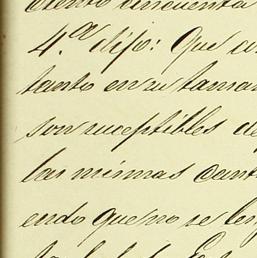 ciento cincuenta
4.ª dijo: Que
tanto en su tama
son suceptibles de
las mismas cant
endo que no se